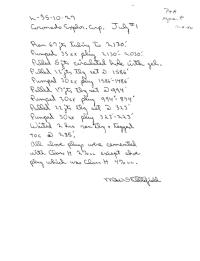 L-35-10-27
Coronado Explor. Corp. July #1
P+A
Ran 67 jts tubing to 2130'.
Pumped 35 sx plug 2130'-2030'.
Pulled 5 jts circulated hole with gel.
Pulled jts tbg set @ 1586'
Pumped 30 sx plug 1586'-1486'
Pulled 17 jts tbg set @ 994'
Pumped 30 sx plug 994'-894'
Pulled 22 jts tbg set @ 323'
Pumped 30 sx plug 323'-223'
Waited 2 hrs ran tbg & tagged
TOC @ 235'.
All above plugs were cemented
with Class H 2% cc except shoe
plug which was Class H 4% cc.